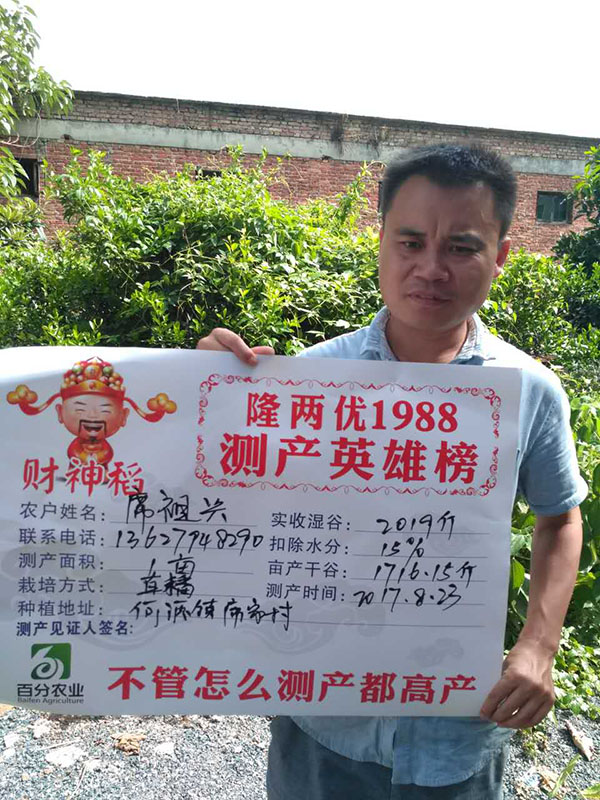 隆两优1988
测产英雄榜
财神稻
农户姓名：席祖兴
联系电话：13627948290
测产面积：1亩
栽培方式：直播
种植地址：何源镇席家村
实收湿谷：2019斤
扣除水分：15%
亩产干谷：1716.15斤
测产时间：2017.8.23
测产见证人签名：
百分农业
Baifen Agriculture
不管怎么测产都高产